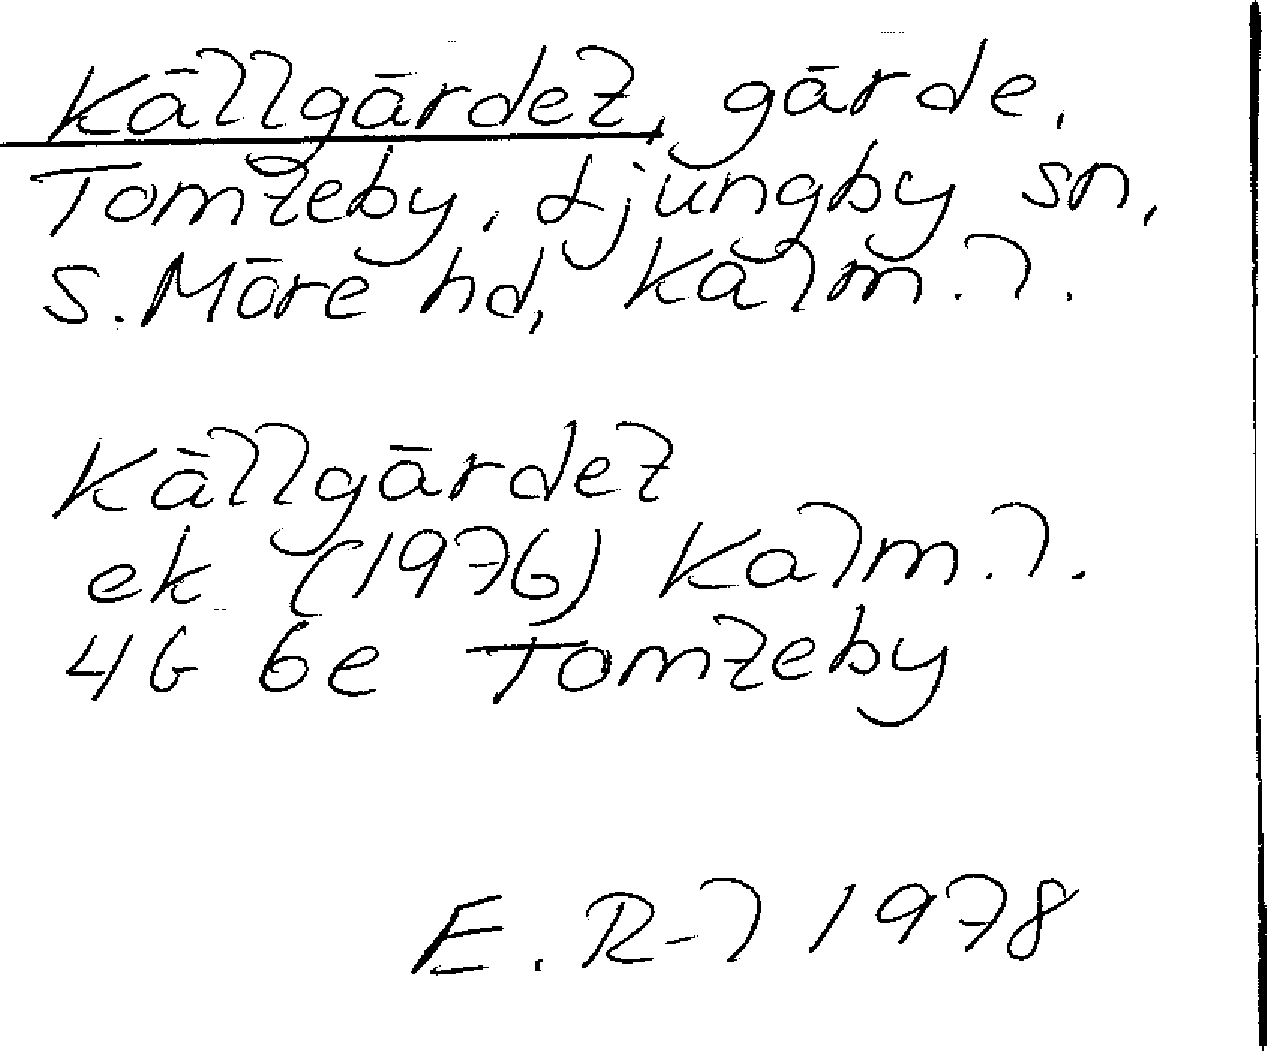 Källgärdet, gärde.
Tomteby, Ljungby sn,
S. Möre hd, Kalm. l.
Källgärdet
ek (1976) Kalm. l.
4G 6e Tomteby
E. R-l 1978